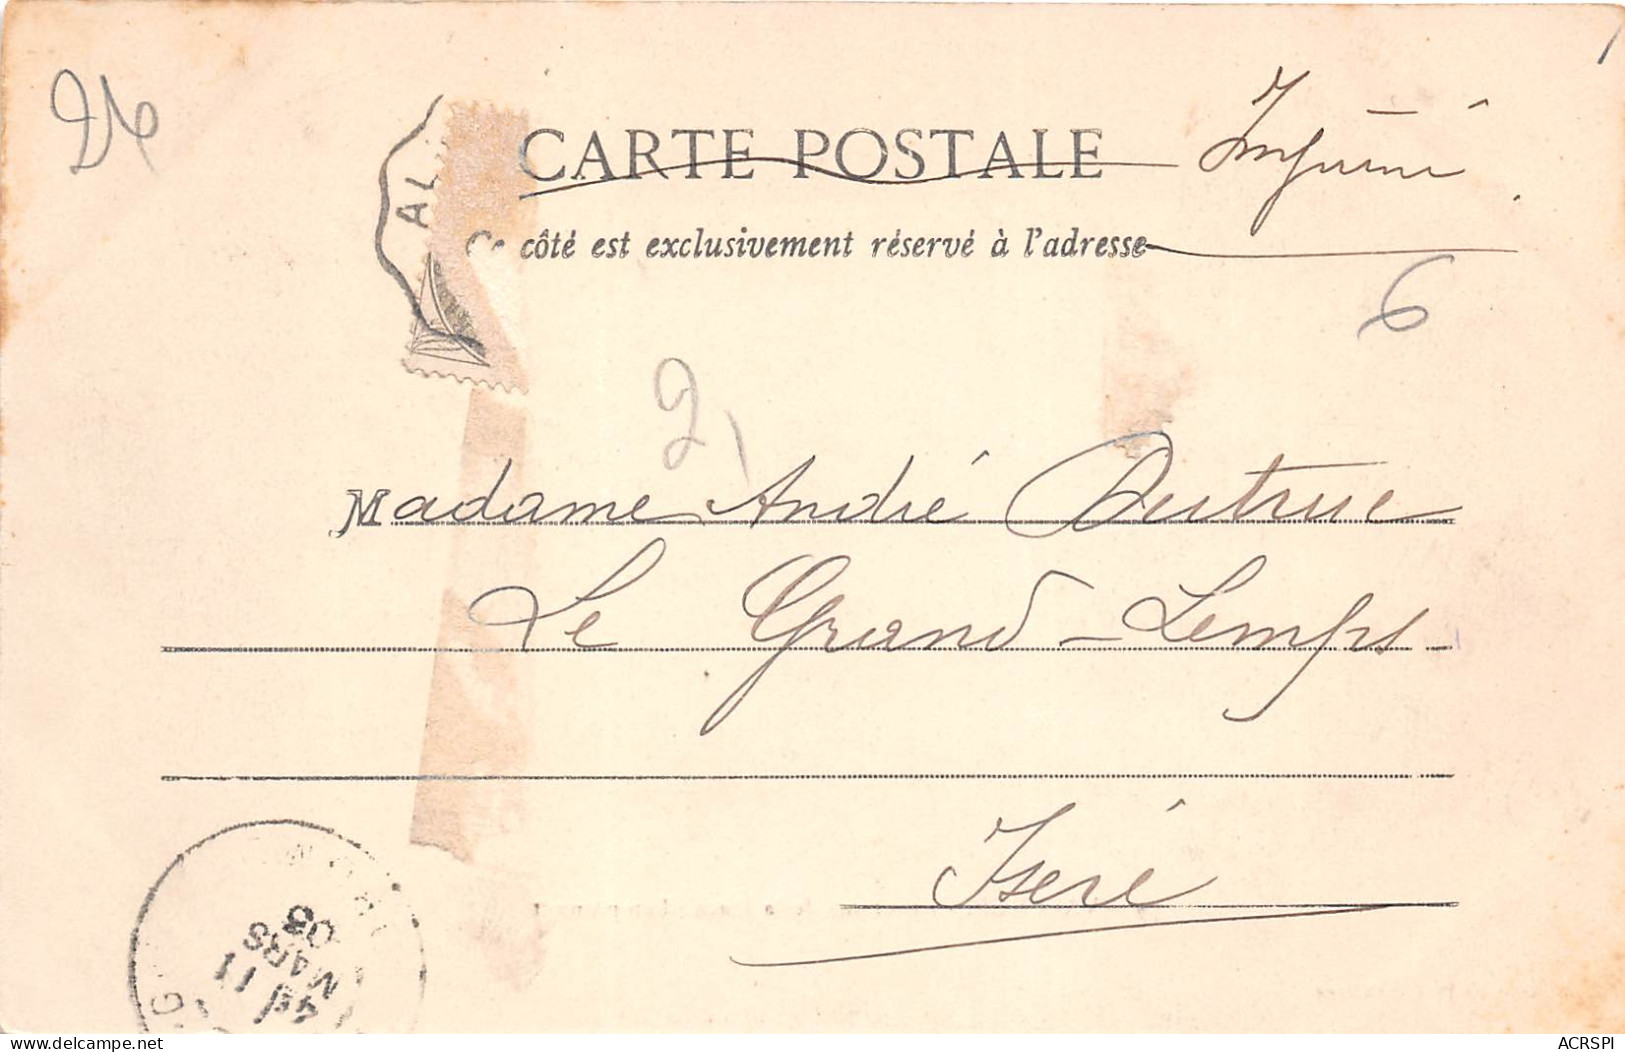 26
CARTE POSTALE Imprimé
AL
Ce côté est exclusivement réservé à l'adresse
6
2
Madame André Dutrue
Le Grand-Lemps
Isère
11
MARS
03
Delcampe.net
ACRSPI